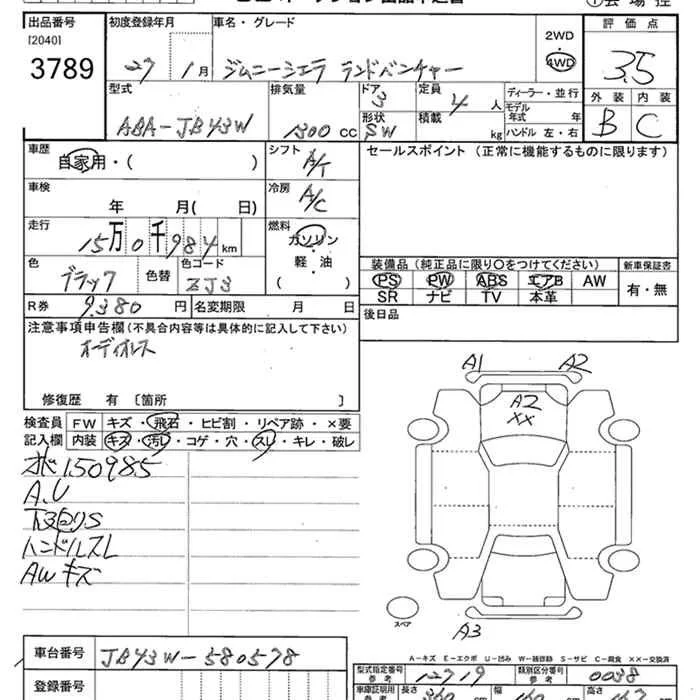 出品番号 初度登録年月 車名・グレード 評価点
[2040] 2WD
3789 27 1月 ジムニーシエラ ランドベンチャー 4WD 3.5
型式 排気量 ドア 定員 ディーラー・並行 外装 内装
3 4人 モデル年式 年
ABA-JB43W 1300cc 形状 積載 B C
SW kg ハンドル 左・右
車歴 シフト セールスポイント (正常に機能するものに限ります)
自家用・( ) A/T
車検 冷房
年 月( 日) A/C
走行 燃料
15万0千984km ガソリン
色 色替 色コード 軽・油 装備品 (純正品に限り○をつけてください) 新車保証書
ブラック ZJ3 ( ) PS PW ABS エアB AW 有・無
R券 9380円 名変期限 月 日 SR ナビ TV 本革
注意事項申告欄(不具合内容等は具体的に記入して下さい) 後日品
オーディオレス
修復歴 有 [箇所 ]
A1 A2
A2
XX
検査員 FW キズ・飛石・ヒビ割・リペア跡・×要
記入欄 内装 キズ・汚レ・コゲ・穴・スレ・キレ・破レ
150985
A.U
下回りS
ハンドルスレ
AWキズ
スペア
A3
A-キズ E-エクボ U-凹み W-補修跡 S-サビ C-腐食 ××-交換済
車台番号 JB43W-580578 型式指定番号 参考 12719 類別区分番号 参考 0038
登録番号 車庫証明用 参考 長さ 360 幅 160 高さ